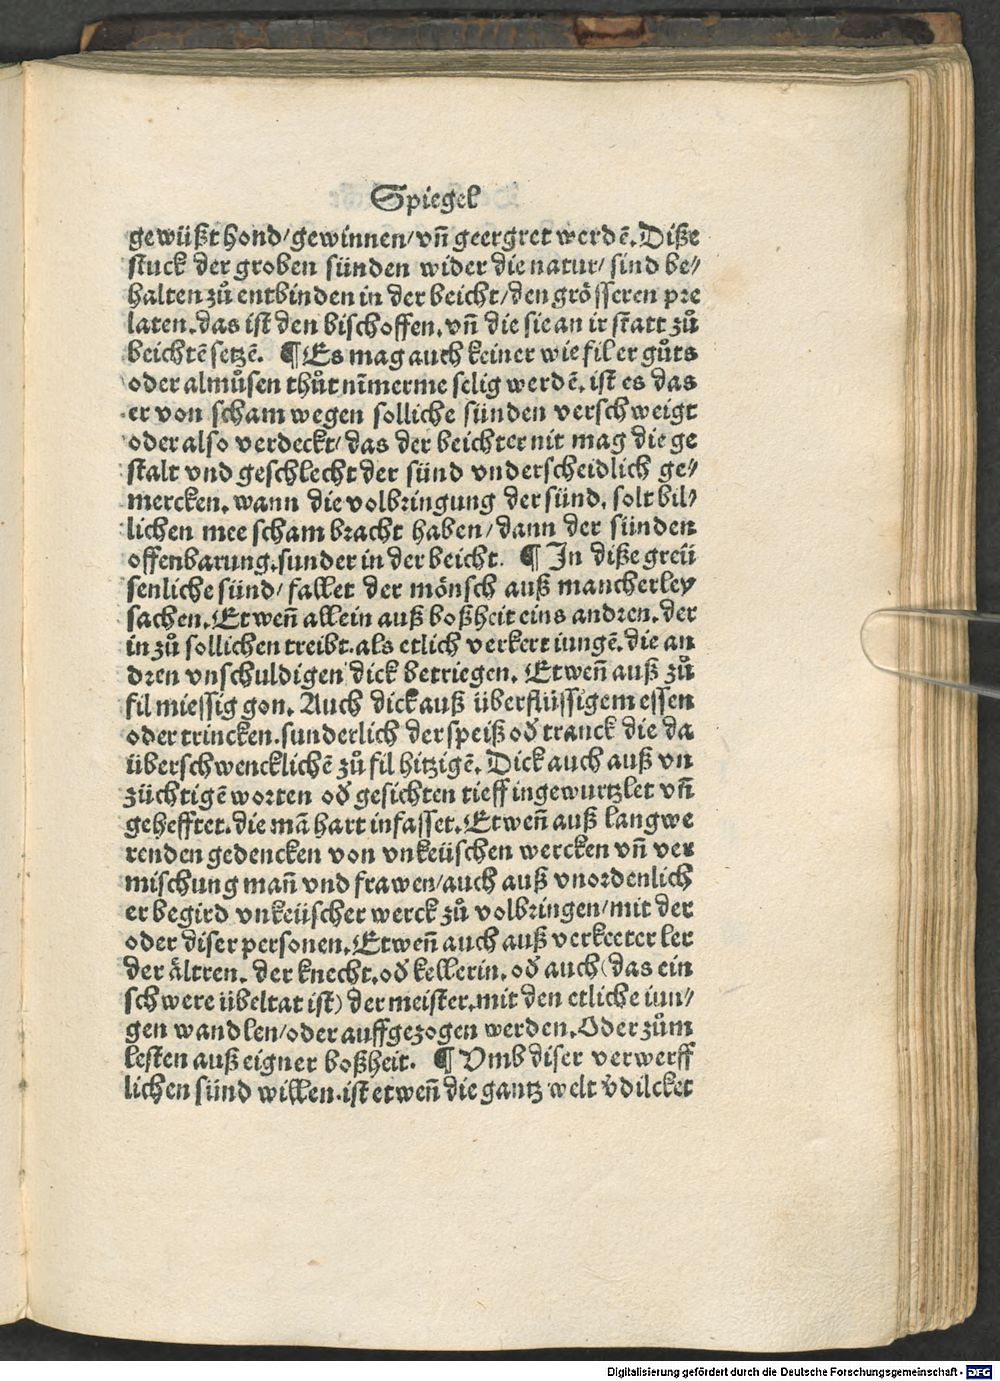 Spiegel
gewüßt hond/gewinnen/vñ geergret werdẽ. Diße
stuck der groben sünden wider die natur/ sind be⸗
halten zů entbinden in der beicht/den grösseren pre
laten. das ist den bischoffen. vñ die sie an ir statt zů
beichtẽ setzẽ. ¶ Es mag auch keiner wie fil er gůts
oder almůsen thůt nĩmerme selig werdẽ. ist es das
er von scham wegen solliche sünden verschweigt
oder also verdeckt/ das der beichter nit mag die ge
stalt vnd geschlecht der sünd vnderscheidlich ge⸗
mercken. wann die volbringung der sünd. solt bil⸗
lichen mee scham bracht haben/ dann der sünden
offenbarung. sunder in der beicht. ¶ In diße greü
senliche sünd/ fallet der mönsch auß mancherley
sachen. Etweñ allein auß boßheit eins andren. der
in zů sollichen treibt. als etlich verkert iungẽ. die an
dren vnschuldigen dick betriegen. Etweñ auß zů
fil miessig gon. Auch dick auß überflüssigem essen
oder trincken. sunderlich der speiß oď tranck die da
überschwencklichẽ zů fil hitzigẽ. Dick auch auß vn
züchtigẽ worten oď gesichten tieff ingewurtzlet vñ
gehefftet. die mã hart infasset. Etweñ auß langwe
renden gedencken von vnkeüschen wercken vñ ver
mischung mañ vnd frawen/auch auß vnordenlich
er begird vnkeüscher werck zů volbringen/mit der
oder diser personen. Etweñ auch auß verkeeter ler
der ältren. der knecht. oď kellerin. oď auch (das ein
schwere übeltat ist) der meister. mit den etliche iun⸗
gen wandlen/oder auffgezogen werden. Oder zům
lesten auß eigner boßheit. ¶ Vmb diser verwerff
lichen sünd willen. ist etweñ die gantz welt v̉dilcket
Digitalisierung gefördert durch die Deutsche Forschungsgemeinschaft - DFG